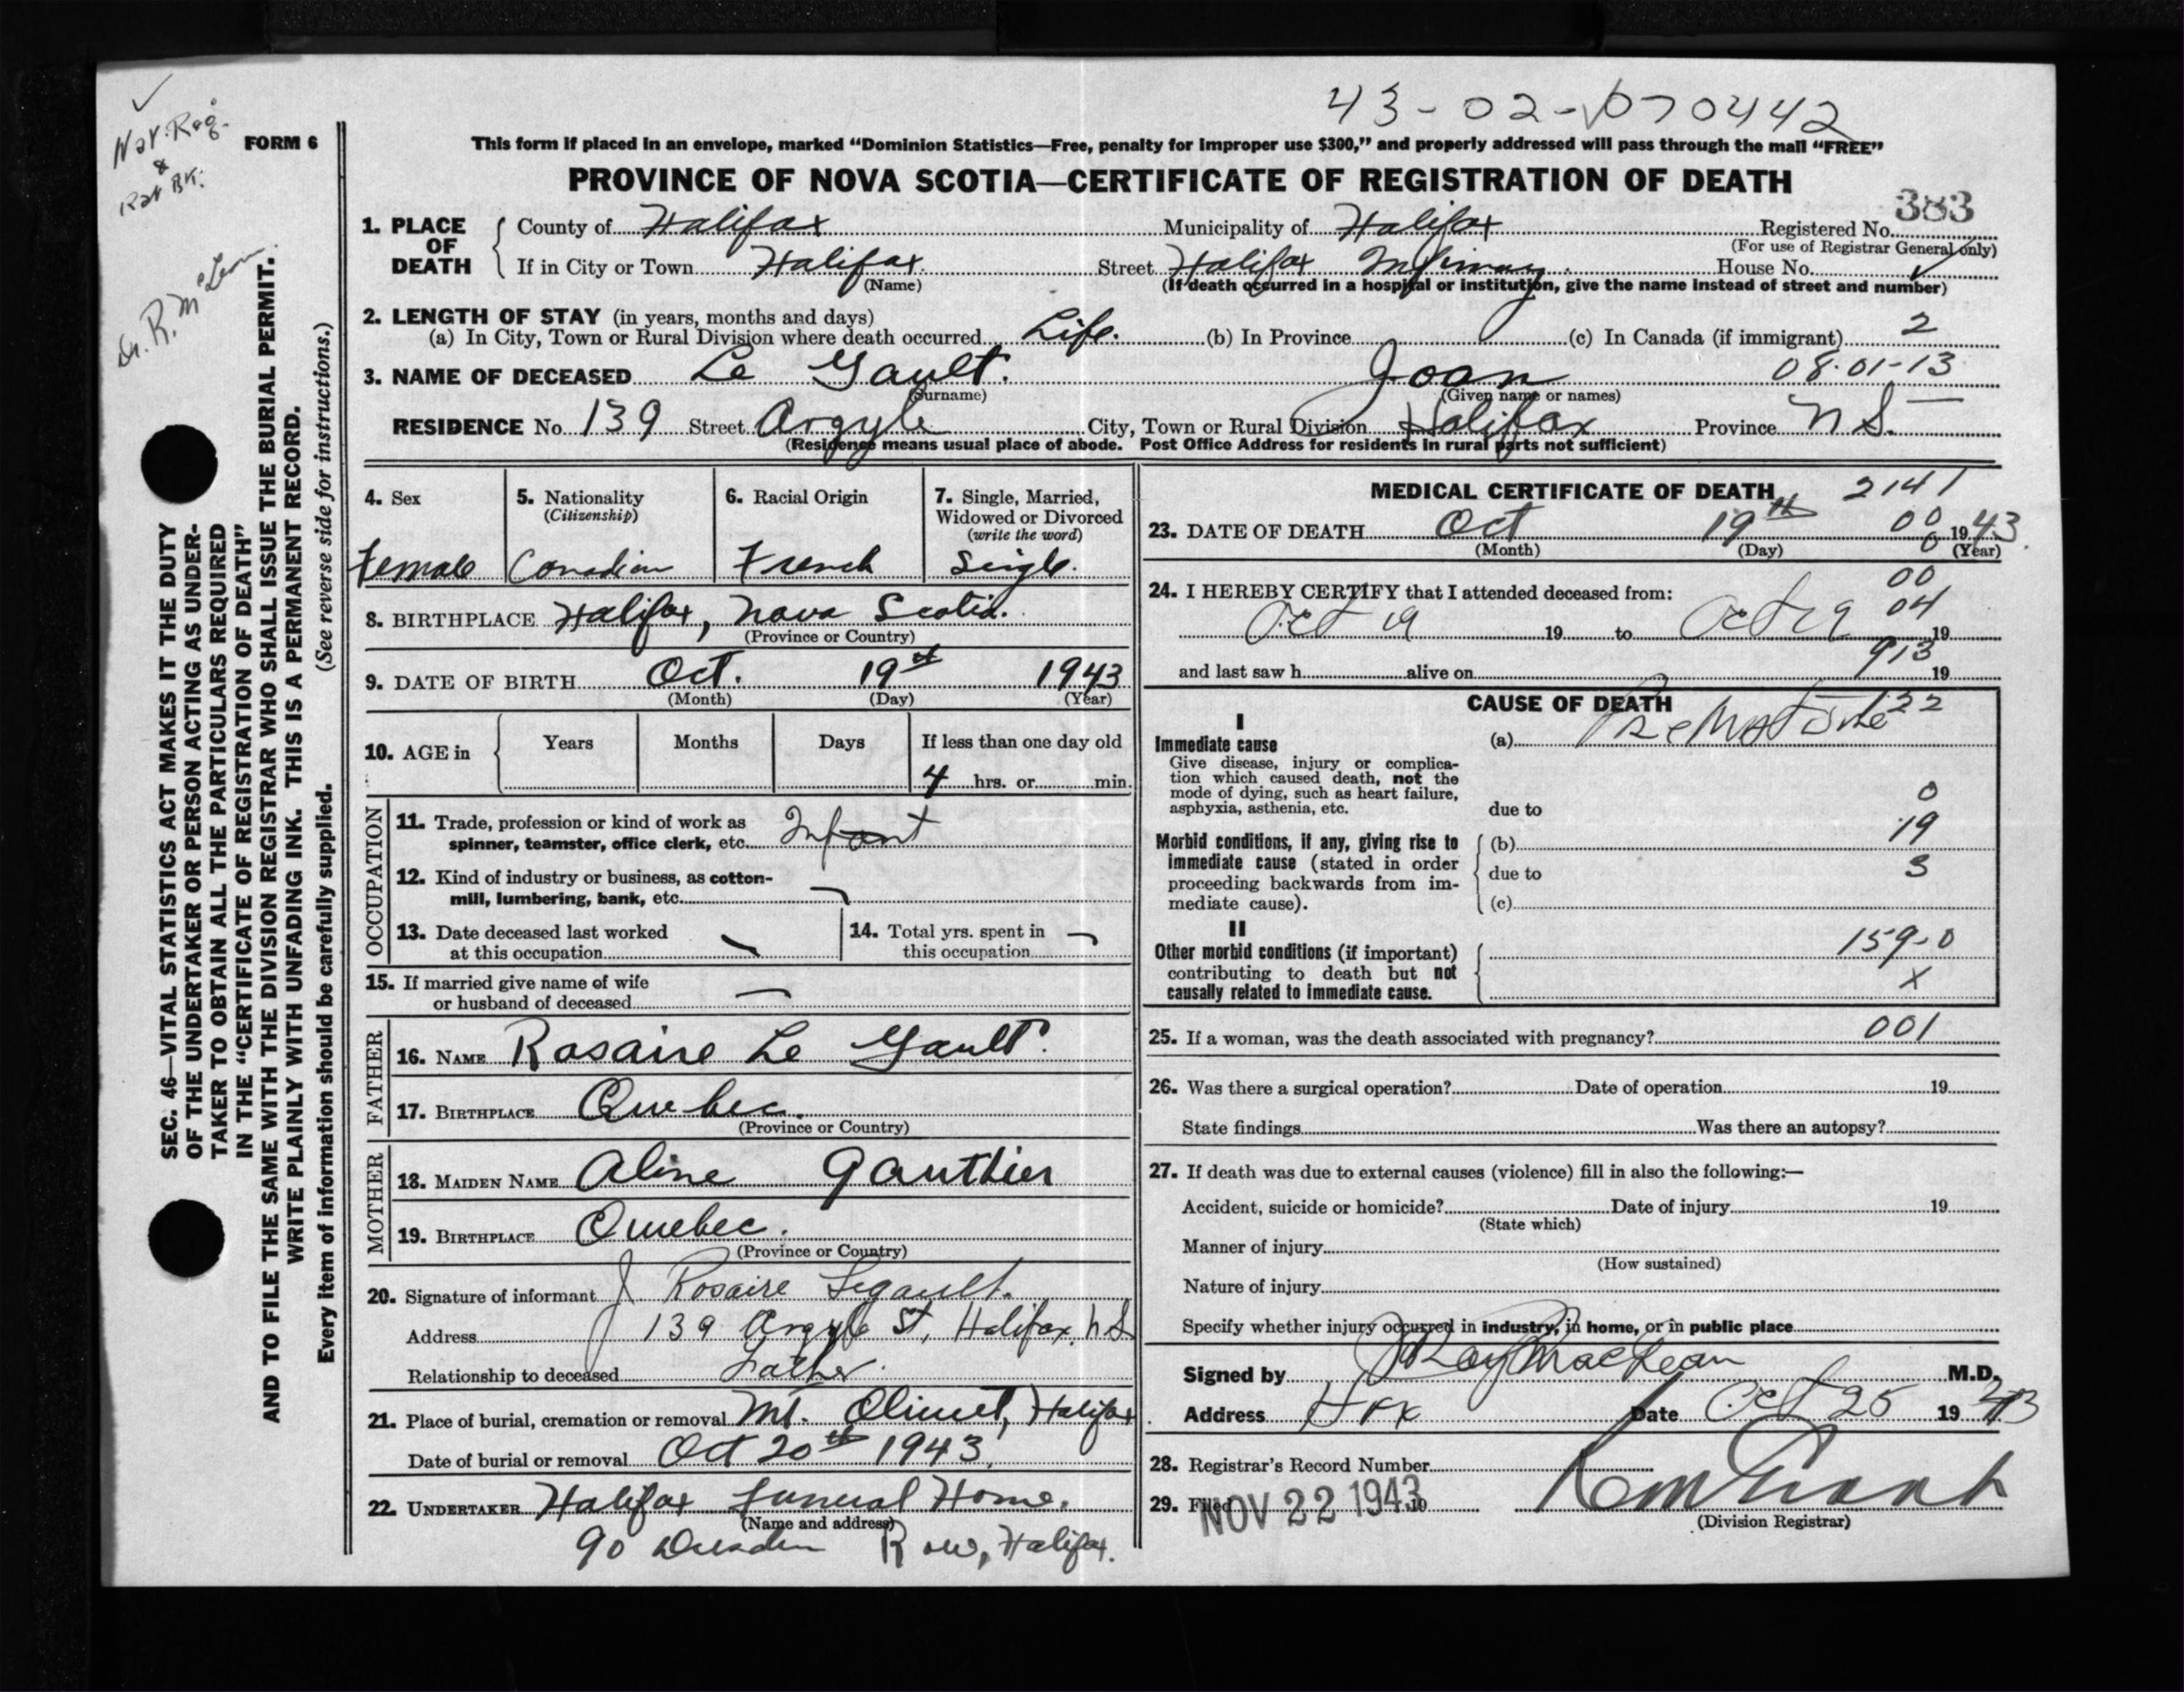 43-02-070442
Nat. Reg.
&
Rat Bk.
Dr. R. McLean
FORM 6
This form if placed in an envelope, marked “Dominion Statistics—Free, penalty for improper use $300,” and properly addressed will pass through the mail “FREE”
PROVINCE OF NOVA SCOTIA—CERTIFICATE OF REGISTRATION OF DEATH
383
1. PLACE OF DEATH County of Halifax Municipality of Halifax Registered No.
(For use of Registrar General only)
If in City or Town Halifax. Street Halifax Infirmary. House No.
(Name) (If death occurred in a hospital or institution, give the name instead of street and number)
2. LENGTH OF STAY (in years, months and days)
(a) In City, Town or Rural Division where death occurred Life. (b) In Province (c) In Canada (if immigrant) 2
3. NAME OF DECEASED Le Gault. Joan 08-01-13
(Surname) (Given name or names)
RESIDENCE No. 139 Street Argyle City, Town or Rural Division Halifax Province N S.
(Residence means usual place of abode. Post Office Address for residents in rural parts not sufficient)
4. Sex 5. Nationality 6. Racial Origin 7. Single, Married,
(Citizenship) Widowed or Divorced
(write the word)
Female Canadian French Single.
8. BIRTHPLACE Halifax, Nova Scotia.
(Province or Country)
9. DATE OF BIRTH Oct. 19th 1943
(Month) (Day) (Year)
10. AGE in Years Months Days If less than one day old
4 hrs. or min.
OCCUPATION
11. Trade, profession or kind of work as
spinner, teamster, office clerk, etc. Infant
12. Kind of industry or business, as cotton-
mill, lumbering, bank, etc.
13. Date deceased last worked 14. Total yrs. spent in
at this occupation this occupation
15. If married give name of wife
or husband of deceased —
FATHER
16. NAME Rosaire Le Gault.
17. BIRTHPLACE Quebec.
(Province or Country)
MOTHER
18. MAIDEN NAME Aline Gauthier
19. BIRTHPLACE Quebec.
(Province or Country)
20. Signature of informant J Rosaire Legault.
Address 139 Argyle St, Halifax, N S
Relationship to deceased Father.
21. Place of burial, cremation or removal Mt. Olivet, Halifax
Date of burial or removal Oct 20th 1943.
22. UNDERTAKER Halifax Funeral Home.
(Name and address)
90 Dresden Row, Halifax.
MEDICAL CERTIFICATE OF DEATH 2141
23. DATE OF DEATH Oct 19th 00 1943.
(Month) (Day) 0 (Year)
00
24. I HEREBY CERTIFY that I attended deceased from: 04
Oct 19 19 to Oct 19 19
913
and last saw h alive on 19
CAUSE OF DEATH 122
I
Immediate cause (a) Premature
Give disease, injury or complica-
tion which caused death, not the
mode of dying, such as heart failure, 0
asphyxia, asthenia, etc. due to
19
Morbid conditions, if any, giving rise to (b)
immediate cause (stated in order due to 3
proceeding backwards from im-
mediate cause). (c)
II 159-0
Other morbid conditions (if important)
contributing to death but not X
causally related to immediate cause.
25. If a woman, was the death associated with pregnancy? 001
26. Was there a surgical operation? Date of operation 19
State findings Was there an autopsy?
27. If death was due to external causes (violence) fill in also the following:—
Accident, suicide or homicide? Date of injury 19
(State which)
Manner of injury
(How sustained)
Nature of injury
Specify whether injury occurred in industry, in home, or in public place
Signed by J Roy MacLean M.D.
Address Hfx Date Oct 25 1943
28. Registrar's Record Number
29. Filed NOV 22 1943 19
(Division Registrar)
SEC. 46—VITAL STATISTICS ACT MAKES IT THE DUTY
OF THE UNDERTAKER OR PERSON ACTING AS UNDER-
TAKER TO OBTAIN ALL THE PARTICULARS REQUIRED
IN THE “CERTIFICATE OF REGISTRATION OF DEATH”
AND TO FILE THE SAME WITH THE DIVISION REGISTRAR WHO SHALL ISSUE THE BURIAL PERMIT.
WRITE PLAINLY WITH UNFADING INK. THIS IS A PERMANENT RECORD.
Every item of information should be carefully supplied. (See reverse side for instructions.)